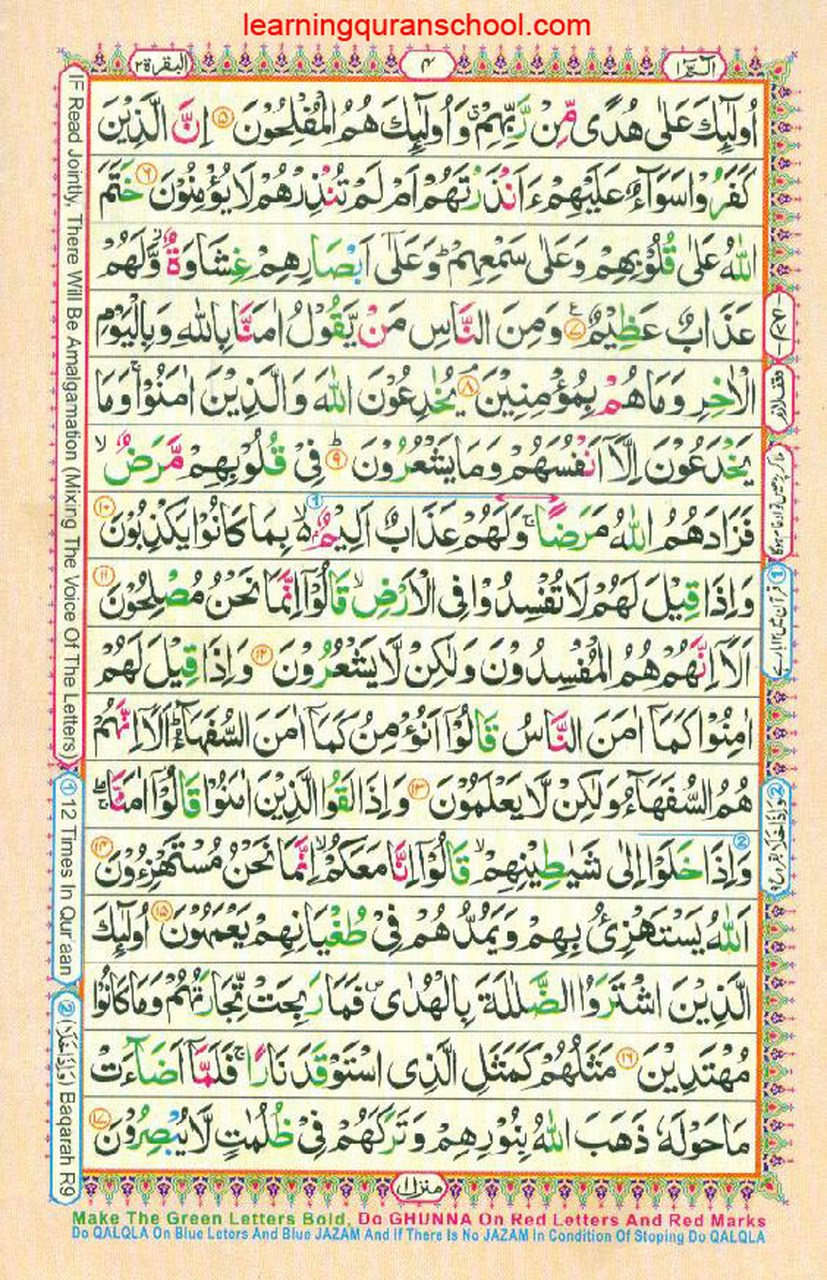 learningquranschool.com
البقرة ٢
٤
الٓمّٓ ١
اُولٰٓئِكَ عَلٰى هُدًى مِّنْ رَّبِّهِمْ ۗ وَاُولٰٓئِكَ هُمُ الْمُفْلِحُوْنَ ۝٥ اِنَّ الَّذِيْنَ
كَفَرُوْا سَوَآءٌ عَلَيْهِمْ ءَاَنْذَرْتَهُمْ اَمْ لَمْ تُنْذِرْهُمْ لَا يُؤْمِنُوْنَ ۝٦ خَتَمَ
اللّٰهُ عَلٰى قُلُوْبِهِمْ وَعَلٰى سَمْعِهِمْ ؕ وَعَلٰٓى اَبْصَارِهِمْ غِشَاوَةٌ ۙ وَّلَهُمْ
عَذَابٌ عَظِيْمٌ ۝٧ وَمِنَ النَّاسِ مَنْ يَّقُوْلُ اٰمَنَّا بِاللّٰهِ وَبِالْيَوْمِ
الْاٰخِرِ وَمَا هُمْ بِمُؤْمِنِيْنَ ۝٨ يُخٰدِعُوْنَ اللّٰهَ وَالَّذِيْنَ اٰمَنُوْا ۚ وَمَا
يَخْدَعُوْنَ اِلَّآ اَنْفُسَهُمْ وَمَا يَشْعُرُوْنَ ۝٩ ؕ فِيْ قُلُوْبِهِمْ مَّرَضٌ ۙ
فَزَادَهُمُ اللّٰهُ مَرَضًا ۚ وَلَهُمْ عَذَابٌ اَلِيْمٌ ۙ۬ بِمَا كَانُوْا يَكْذِبُوْنَ ۝١٠
وَاِذَا قِيْلَ لَهُمْ لَا تُفْسِدُوْا فِى الْاَرْضِ ۙ قَالُوْٓا اِنَّمَا نَحْنُ مُصْلِحُوْنَ ۝١١
اَلَآ اِنَّهُمْ هُمُ الْمُفْسِدُوْنَ وَلٰكِنْ لَّا يَشْعُرُوْنَ ۝١٢ وَاِذَا قِيْلَ لَهُمْ
اٰمِنُوْا كَمَآ اٰمَنَ النَّاسُ قَالُوْٓا اَنُؤْمِنُ كَمَآ اٰمَنَ السُّفَهَآءُ ؕ اَلَآ اِنَّهُمْ
هُمُ السُّفَهَآءُ وَلٰكِنْ لَّا يَعْلَمُوْنَ ۝١٣ وَاِذَا لَقُوا الَّذِيْنَ اٰمَنُوْا قَالُوْٓا اٰمَنَّا ۚۖ
وَاِذَا خَلَوْا اِلٰى شَيٰطِيْنِهِمْ ۙ قَالُوْٓا اِنَّا مَعَكُمْ ۙ اِنَّمَا نَحْنُ مُسْتَهْزِءُوْنَ ۝١٤
اَللّٰهُ يَسْتَهْزِئُ بِهِمْ وَيَمُدُّهُمْ فِيْ طُغْيَانِهِمْ يَعْمَهُوْنَ ۝١٥ اُولٰٓئِكَ
الَّذِيْنَ اشْتَرَوُا الضَّلٰلَةَ بِالْهُدٰى ۪ فَمَا رَبِحَتْ تِّجَارَتُهُمْ وَمَا كَانُوْا
مُهْتَدِيْنَ ۝١٦ مَثَلُهُمْ كَمَثَلِ الَّذِى اسْتَوْقَدَ نَارًا ۚ فَلَمَّآ اَضَآءَتْ
مَا حَوْلَهٗ ذَهَبَ اللّٰهُ بِنُوْرِهِمْ وَتَرَكَهُمْ فِيْ ظُلُمٰتٍ لَّا يُبْصِرُوْنَ ۝١٧
منزل ١
IF Read Jointly, There Will Be Amalgamation (Mixing The Voice Of The Letters)
① 12 Times In Qur'aan
② (وَاِذَا خَلَا) Baqarah R9
Make The Green Letters Bold, Do GHUNNA On Red Letters And Red Marks
Do QALQLA On Blue Leters And Blue JAZAM And if There Is No JAZAM In Condition Of Stoping Do QALQLA